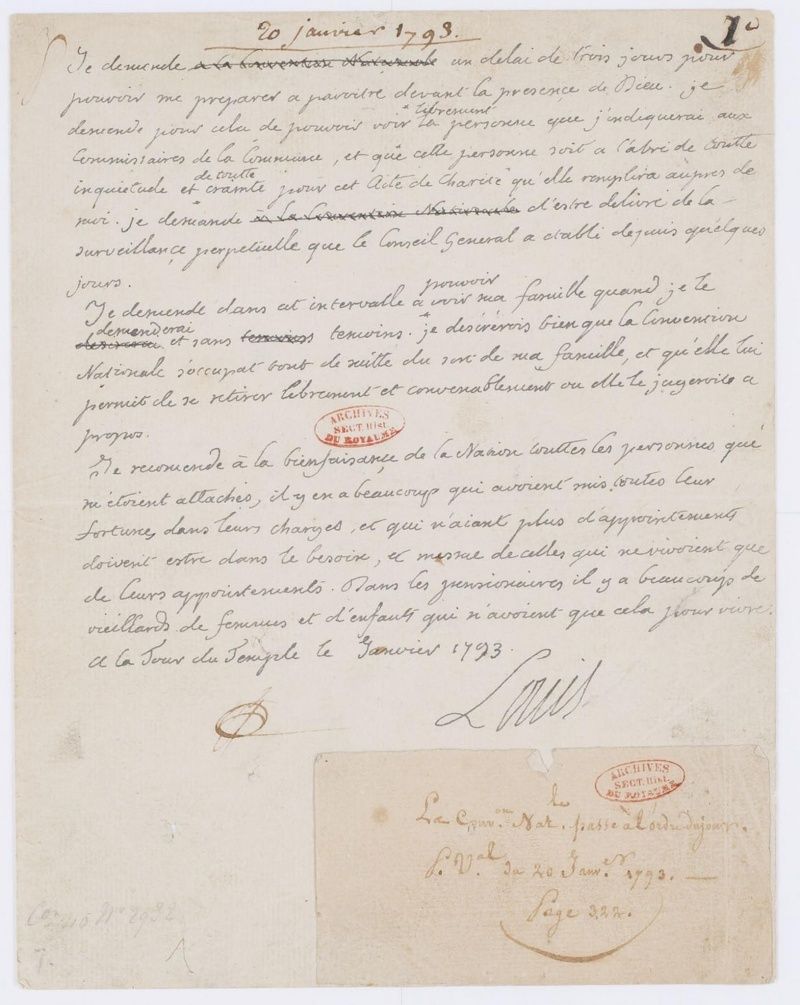 20 janvier 1793.
1º
Je demende a la Convention Nationale un delai de trois jours pour
pouvoir me preparer a paroitre devant la presence de Dieu. je
librement
demende pour cela de pouvoir voir la personne que j'indiquerai aux
Commissaires de la Commune, et que cette personne soit a l'abri de toutte
de toutte
inquietude et crainte pour cet Acte de Charité qu'elle remplira aupres de
moi. je demande à la Convention Nationale d'estre delivré de la
surveillance perpetuelle que le Conseil General a etabli depuis quelques
jours.
pouvoir
Je demende dans cet intervalle à voir ma famille quand je le
demenderai
desirerai et sans temoins temoins. je désirérois bien que la Convention
Nationale s'occupat tout de suitte du sort de ma famille, et qu'elle lui
permit de se retirer librement et convenablement ou elle le jugeroit a
propos.
Je recomende à la bienfaisance de la Nation touttes les personnes qui
m'étoient attachés, il y en a beaucoup qui avoient mis toutes leur
fortune, dans leurs charges, et qui n'aiant plus d'appointements
doivent estre dans le besoin, et mesme de celles qui ne vivoient que
de leurs appointements. Dans les pensionaires il y a beaucoup de
vieillards de femmes et d'enfants qui n'avoient que cela pour vivre.
A la Tour du Temple le Janvier 1793.
Louis
ARCHIVES
SECT. Hist.
DU ROYAUME
ARCHIVES
SECT. Hist.
DU ROYAUME
La Conv.on Nat.le passe à l'ordre du jour.
P. V.al du 20 Janv.er 1793.
Page 322.